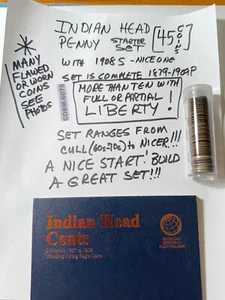 INDIAN HEAD
PENNY STARTER SET [45 COINS]
WITH 1908 S - NICE ONE
SET IS COMPLETE 1879-1909P
*
MANY
FLAWED
OR WORN
COINS
SEE
PHOTOS
MORE THAN TEN WITH
FULL OR PARTIAL
LIBERTY!
SET RANGES FROM
CULL (60s-70s) TO NICER!!!
A NICE START! BUILD
A GREAT SET!!!
Indian Head
Cents
Including Flying Eagle Cents